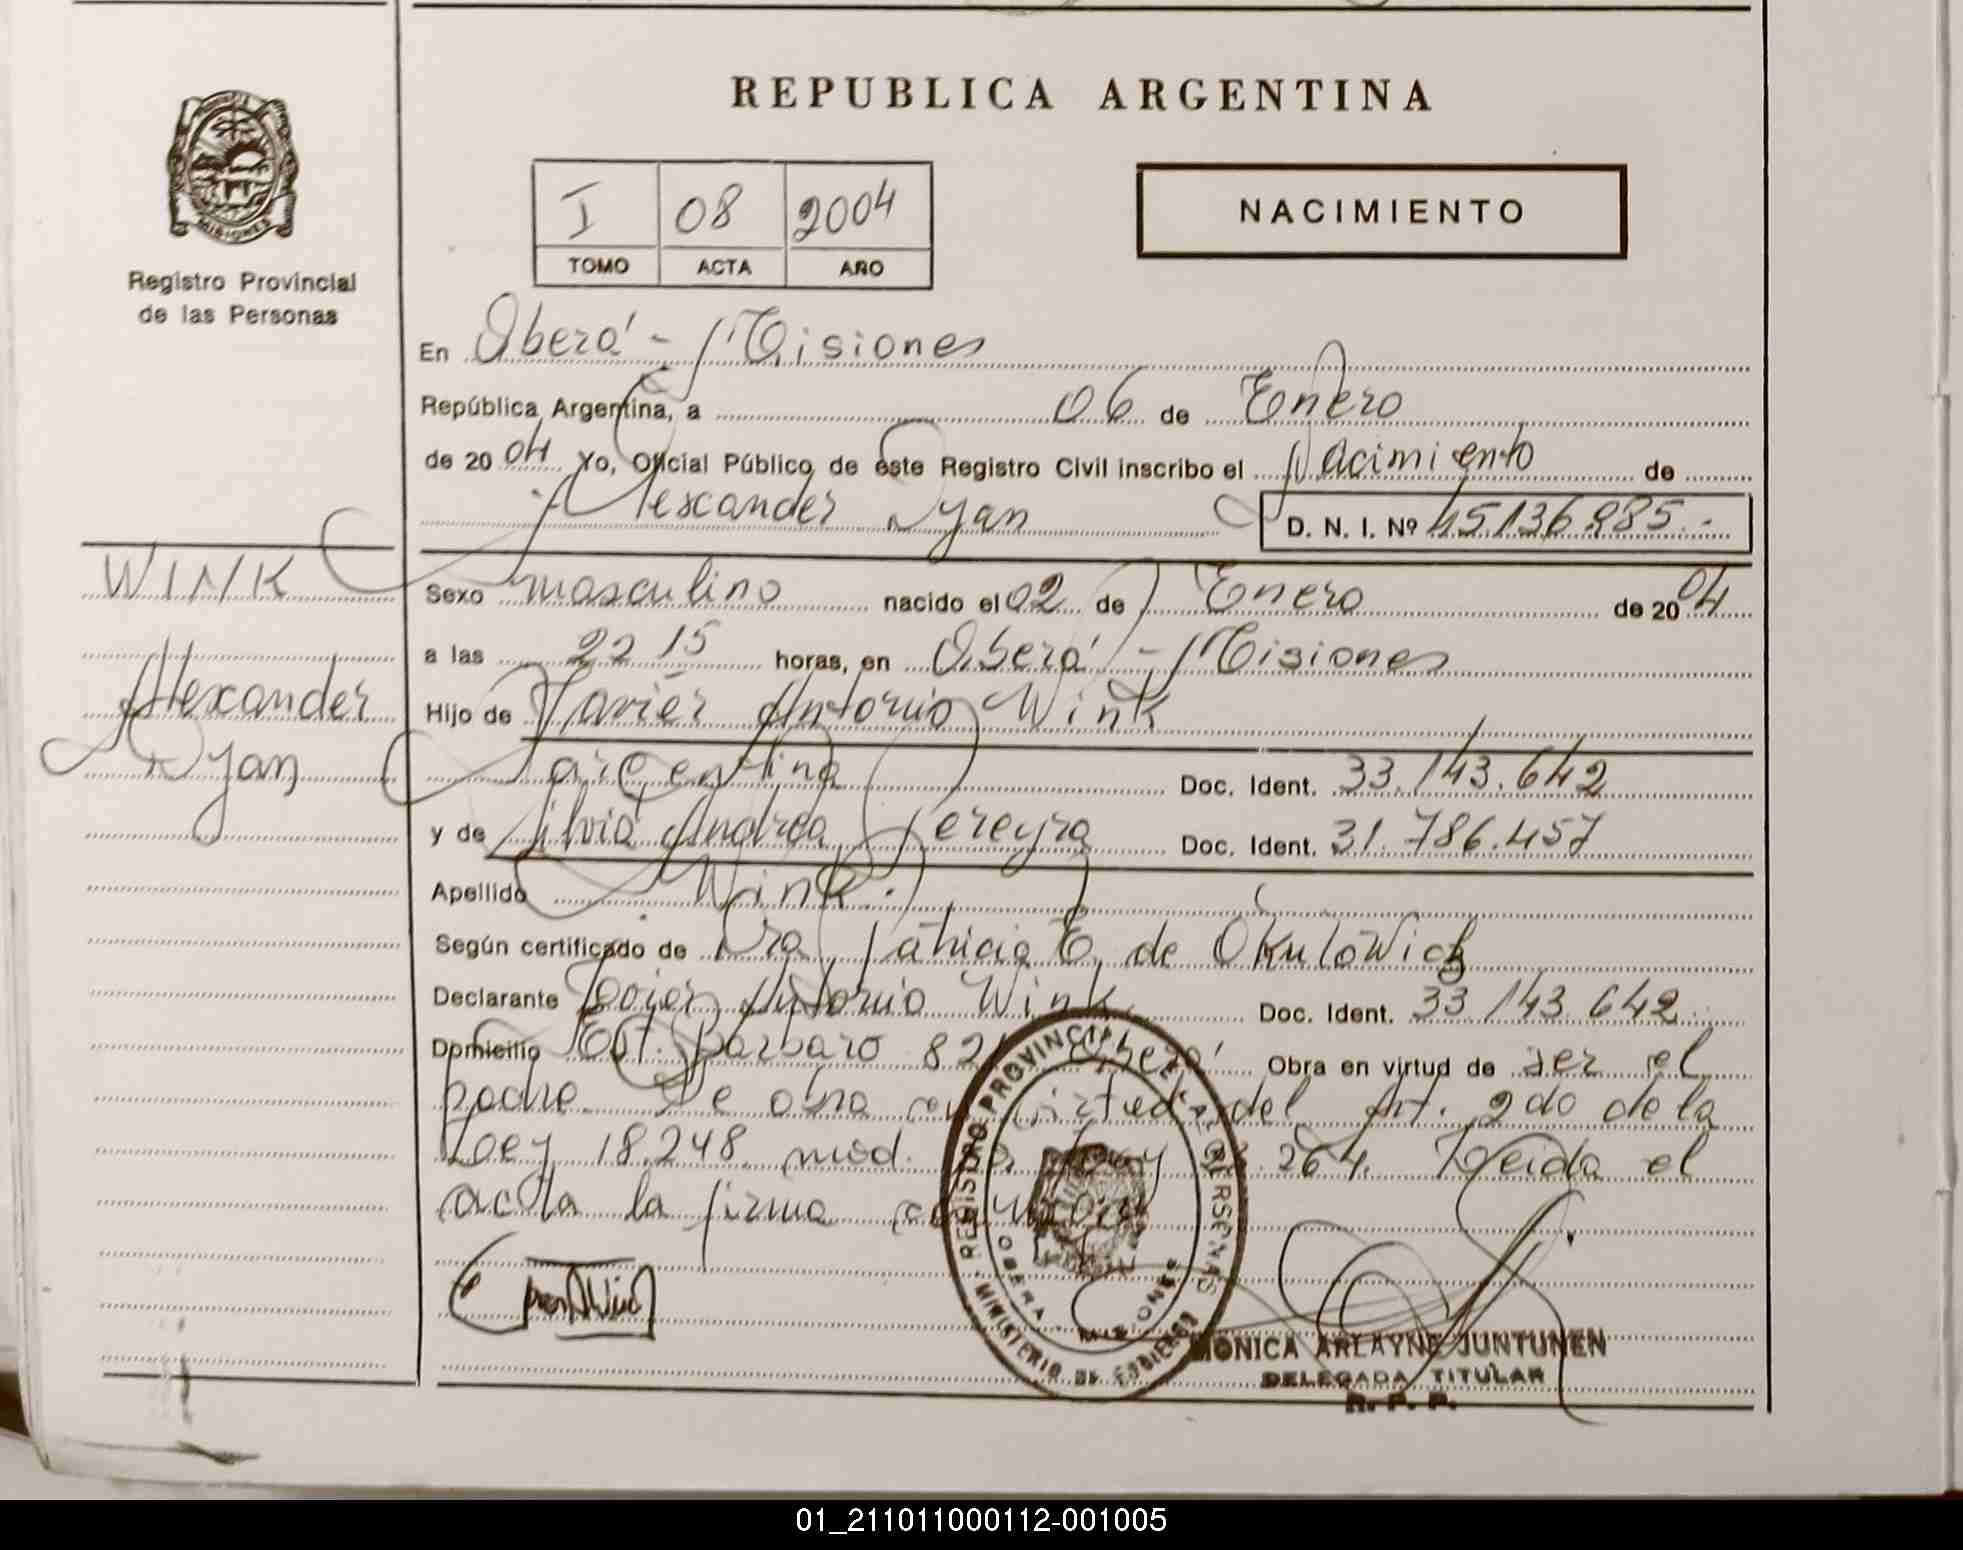 REPUBLICA ARGENTINA
I 08 2004
TOMO ACTA AÑO
NACIMIENTO
MISIONES
Registro Provincial
de las Personas
En Oberá - Misiones
República Argentina, a 06 de Enero
de 2004 Yo, Oficial Público de este Registro Civil inscribo el Nacimiento de
Alexander Dyan D. N. I. Nº 45.136.985.-
WINK
Alexander
Dyan
Sexo masculino nacido el 02 de Enero de 2004
a las 22 15 horas, en Oberá - Misiones
Hijo de Javier Antonio Wink
argentina Doc. Ident. 33.143.642
y de Silvia Andrea Pereyra Doc. Ident. 31.786.457
Apellido Wink.
Según certificado de Dra Patricia E. de Okulowich
Declarante Javier Antonio Wink Doc. Ident. 33 143 642
Domicilio Bárbaro Oberá Obra en virtud de ser el
padre. Se obra en virtud del Art. 2do de la
Ley 18.248 mod. Ley 264. Leida el
acta la firma conmigo
REGISTRO PROVINCIAL DE LAS PERSONAS
OBERA - MISIONES
MINISTERIO DE GOBIERNO
MONICA ARLAYNE JUNTUNEN
DELEGADA TITULAR
R. P. P.
01_211011000112-001005